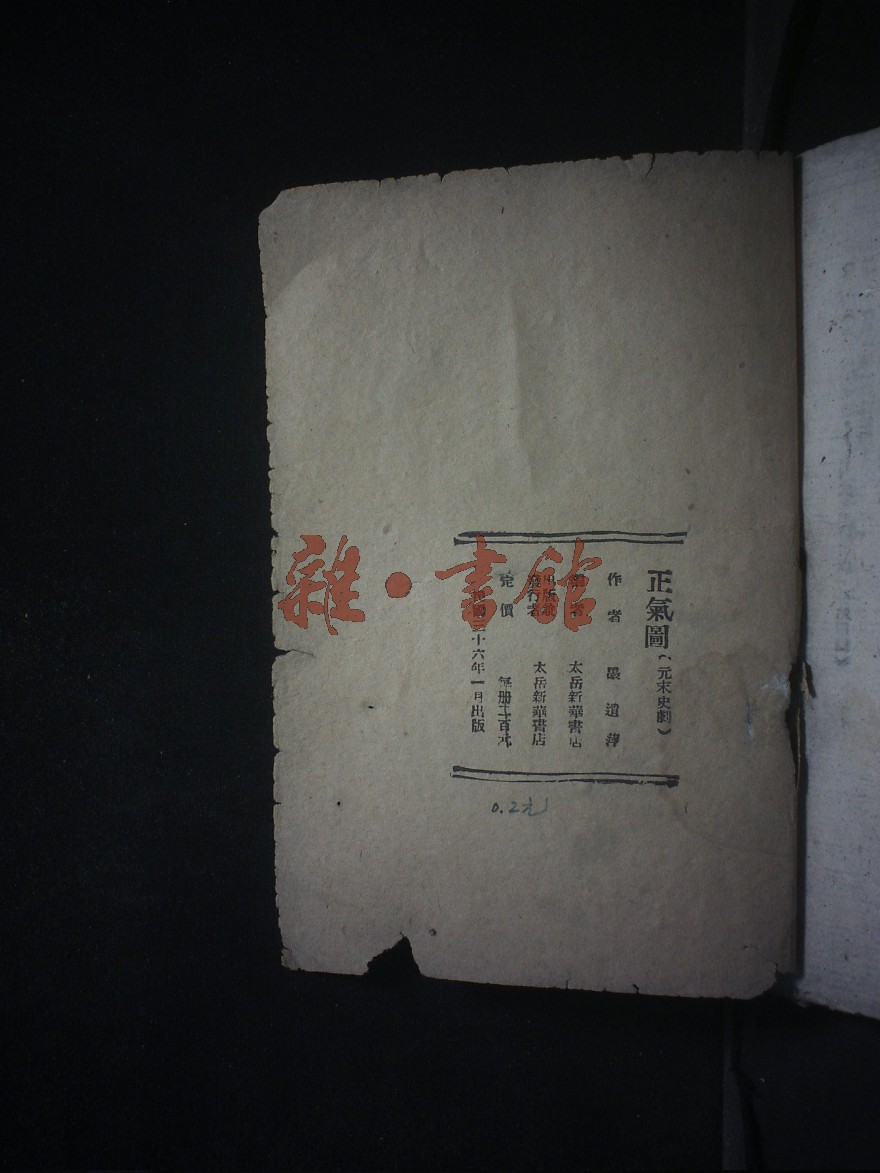 正氣圖（元末史劇）
作者 墨遺萍
出版者 太岳新華書店
發行者 太岳新華書店
定價 每册二百元
民國三十六年一月出版
0.2元
雜·書館